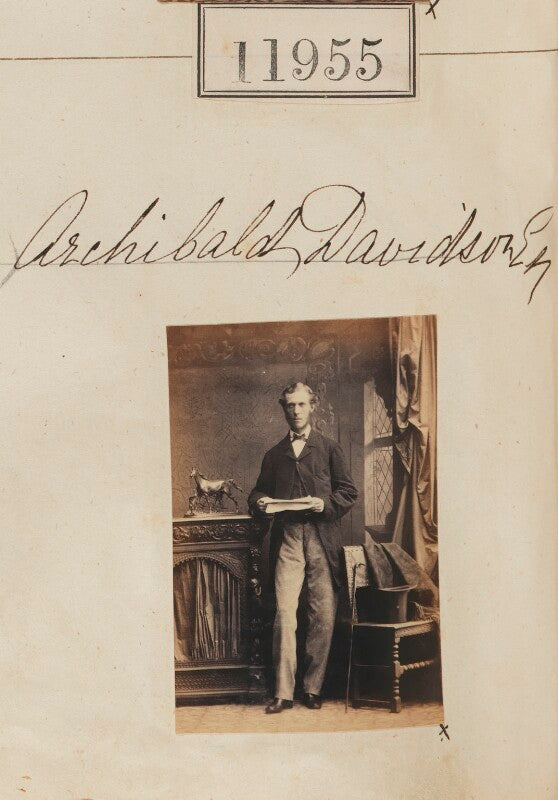 11955
Archibald Davidson Esq